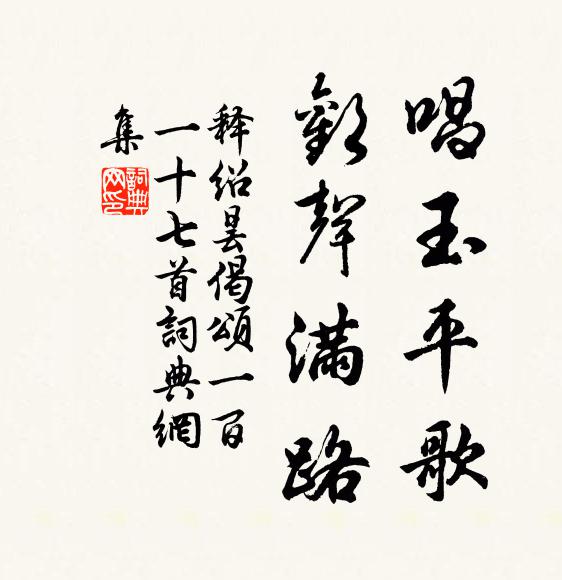 唱玉平歌
歡聲滿路
释绍昙偈頌一百
一十七首詞典網
集
詞典
网印